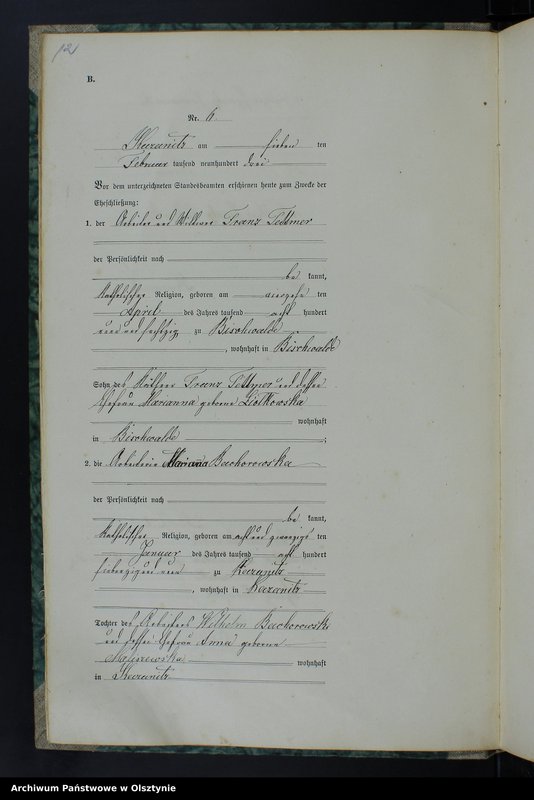 121
B.
Nr. 6.
am sieben ten
Februar tausend neunhundert drei
Vor dem unterzeichneten Standesbeamten erschienen heute zum Zwecke der
Eheschließung:
1. der Arbeiter und Wittwer Franz Tettmer
der Persönlichkeit nach
be kannt,
katholischer Religion, geboren am ten
April des Jahres tausend acht hundert
zu Bischwalde
, wohnhaft in Bischwalde
Sohn des Franz Tettmer und dessen
Ehefrau Marianna geborne
wohnhaft
in Bischwalde ;
2. die Arbeiterin Marianna Bachorowska
der Persönlichkeit nach
be kannt,
katholischer Religion, geboren am acht und zwanzigsten ten
Januar des Jahres tausend acht hundert
zu Kazanitz
, wohnhaft in Kazanitz
Tochter des Arbeiters Wilhelm Bachorowski
und dessen Ehefrau Anna geborne
wohnhaft
in Kazanitz
Archiwum Państwowe w Olsztynie